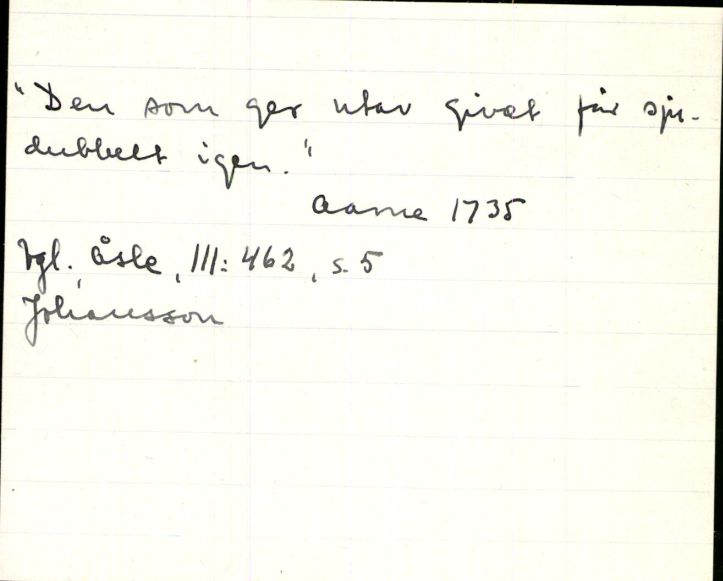 "Den som ger utav givet får sju-
dubbelt igen."
Aarne 1735
Vgl. Åsle, III: 462, s. 5
Johansson